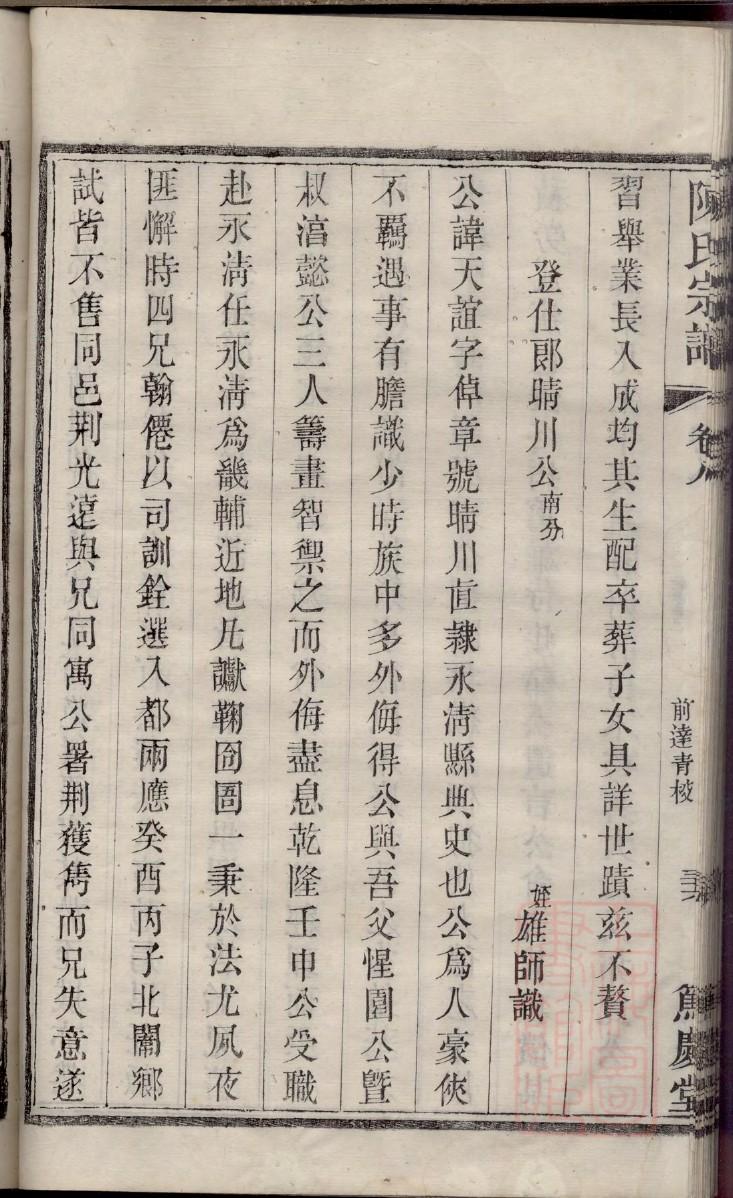 陳氏宗譜 卷八 前達青棱 敦慶堂
習舉業長入成均其生配卒葬子女具詳世蹟茲不贅
登仕郎晴川公南分 姪雄師識
公諱天誼字倬章號晴川直隸永清縣典史也公爲人豪俠
不羈遇事有膽識少時族中多外侮得公與吾父惺園公暨
叔湻懿公三人籌畫智禦之而外侮盡息乾隆壬申公受職
赴永淸任永淸爲畿輔近地凡讞鞠囹圄一秉於法尤夙夜
匪懈時四兄翰僊以司訓銓選入都兩應癸酉丙子北闈鄉
試皆不售同邑荆光遠與兄同寓公署荆獲雋而兄失意遂